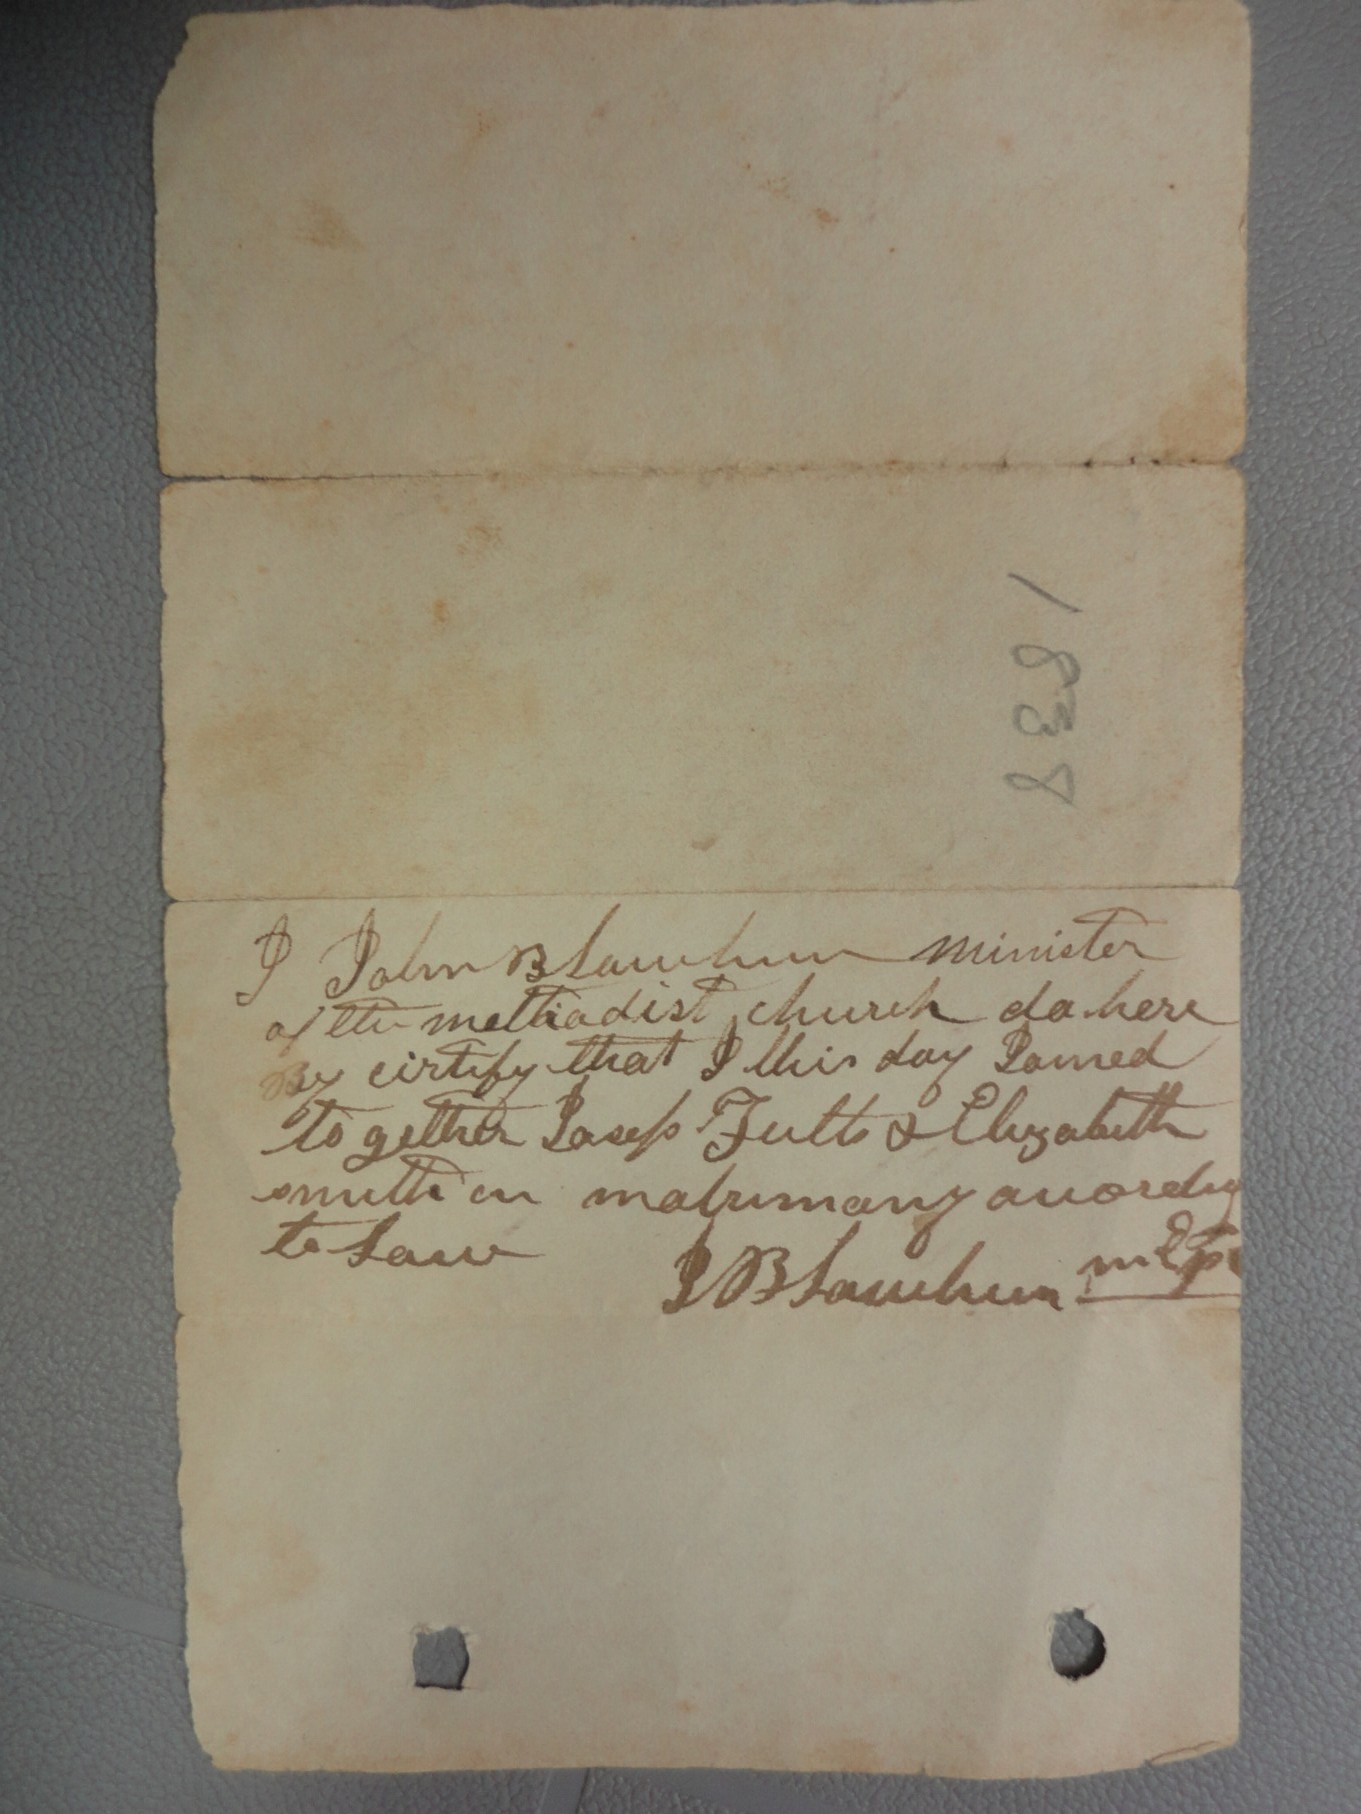 1838
I John B Lawhun minister
of the methodist church do here
By cirtify that I this day Joined
to gether Josep Fults & Elizabeth
smith in matrimony acording
to Law
J B Lawhun